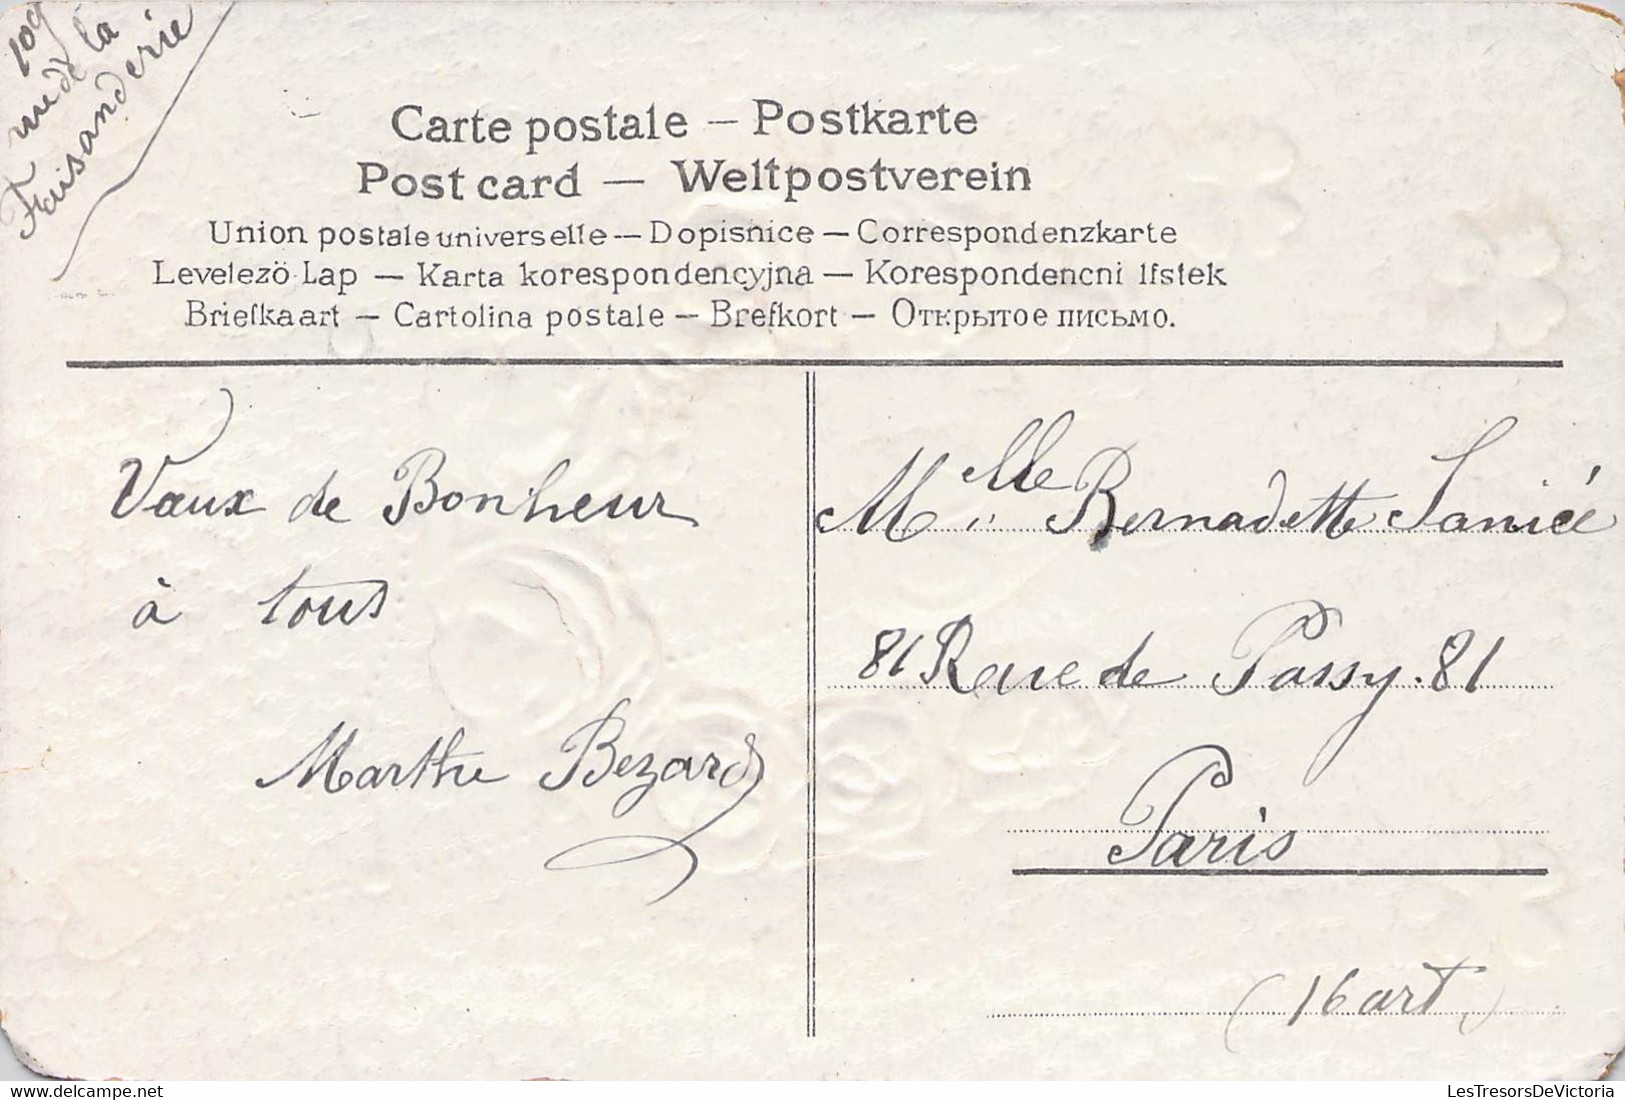 109
rue de la
Faisanderie
Carte postale — Postkarte
Post card — Weltpostverein
Union postale universelle — Dopisnice — Correspondenzkarte
Levelezö-Lap — Karta korespondencyjna — Korespondencni lfstek
Briefkaart — Cartolina postale — Brefkort — Открытое письмо.
Vœux de Bonheur
à tous
Marthe Bezard
Mlle Bernadette
81 Rue de Passy. 81
Paris
(16 art)
LesTresorsDeVictoria
delcampe.net